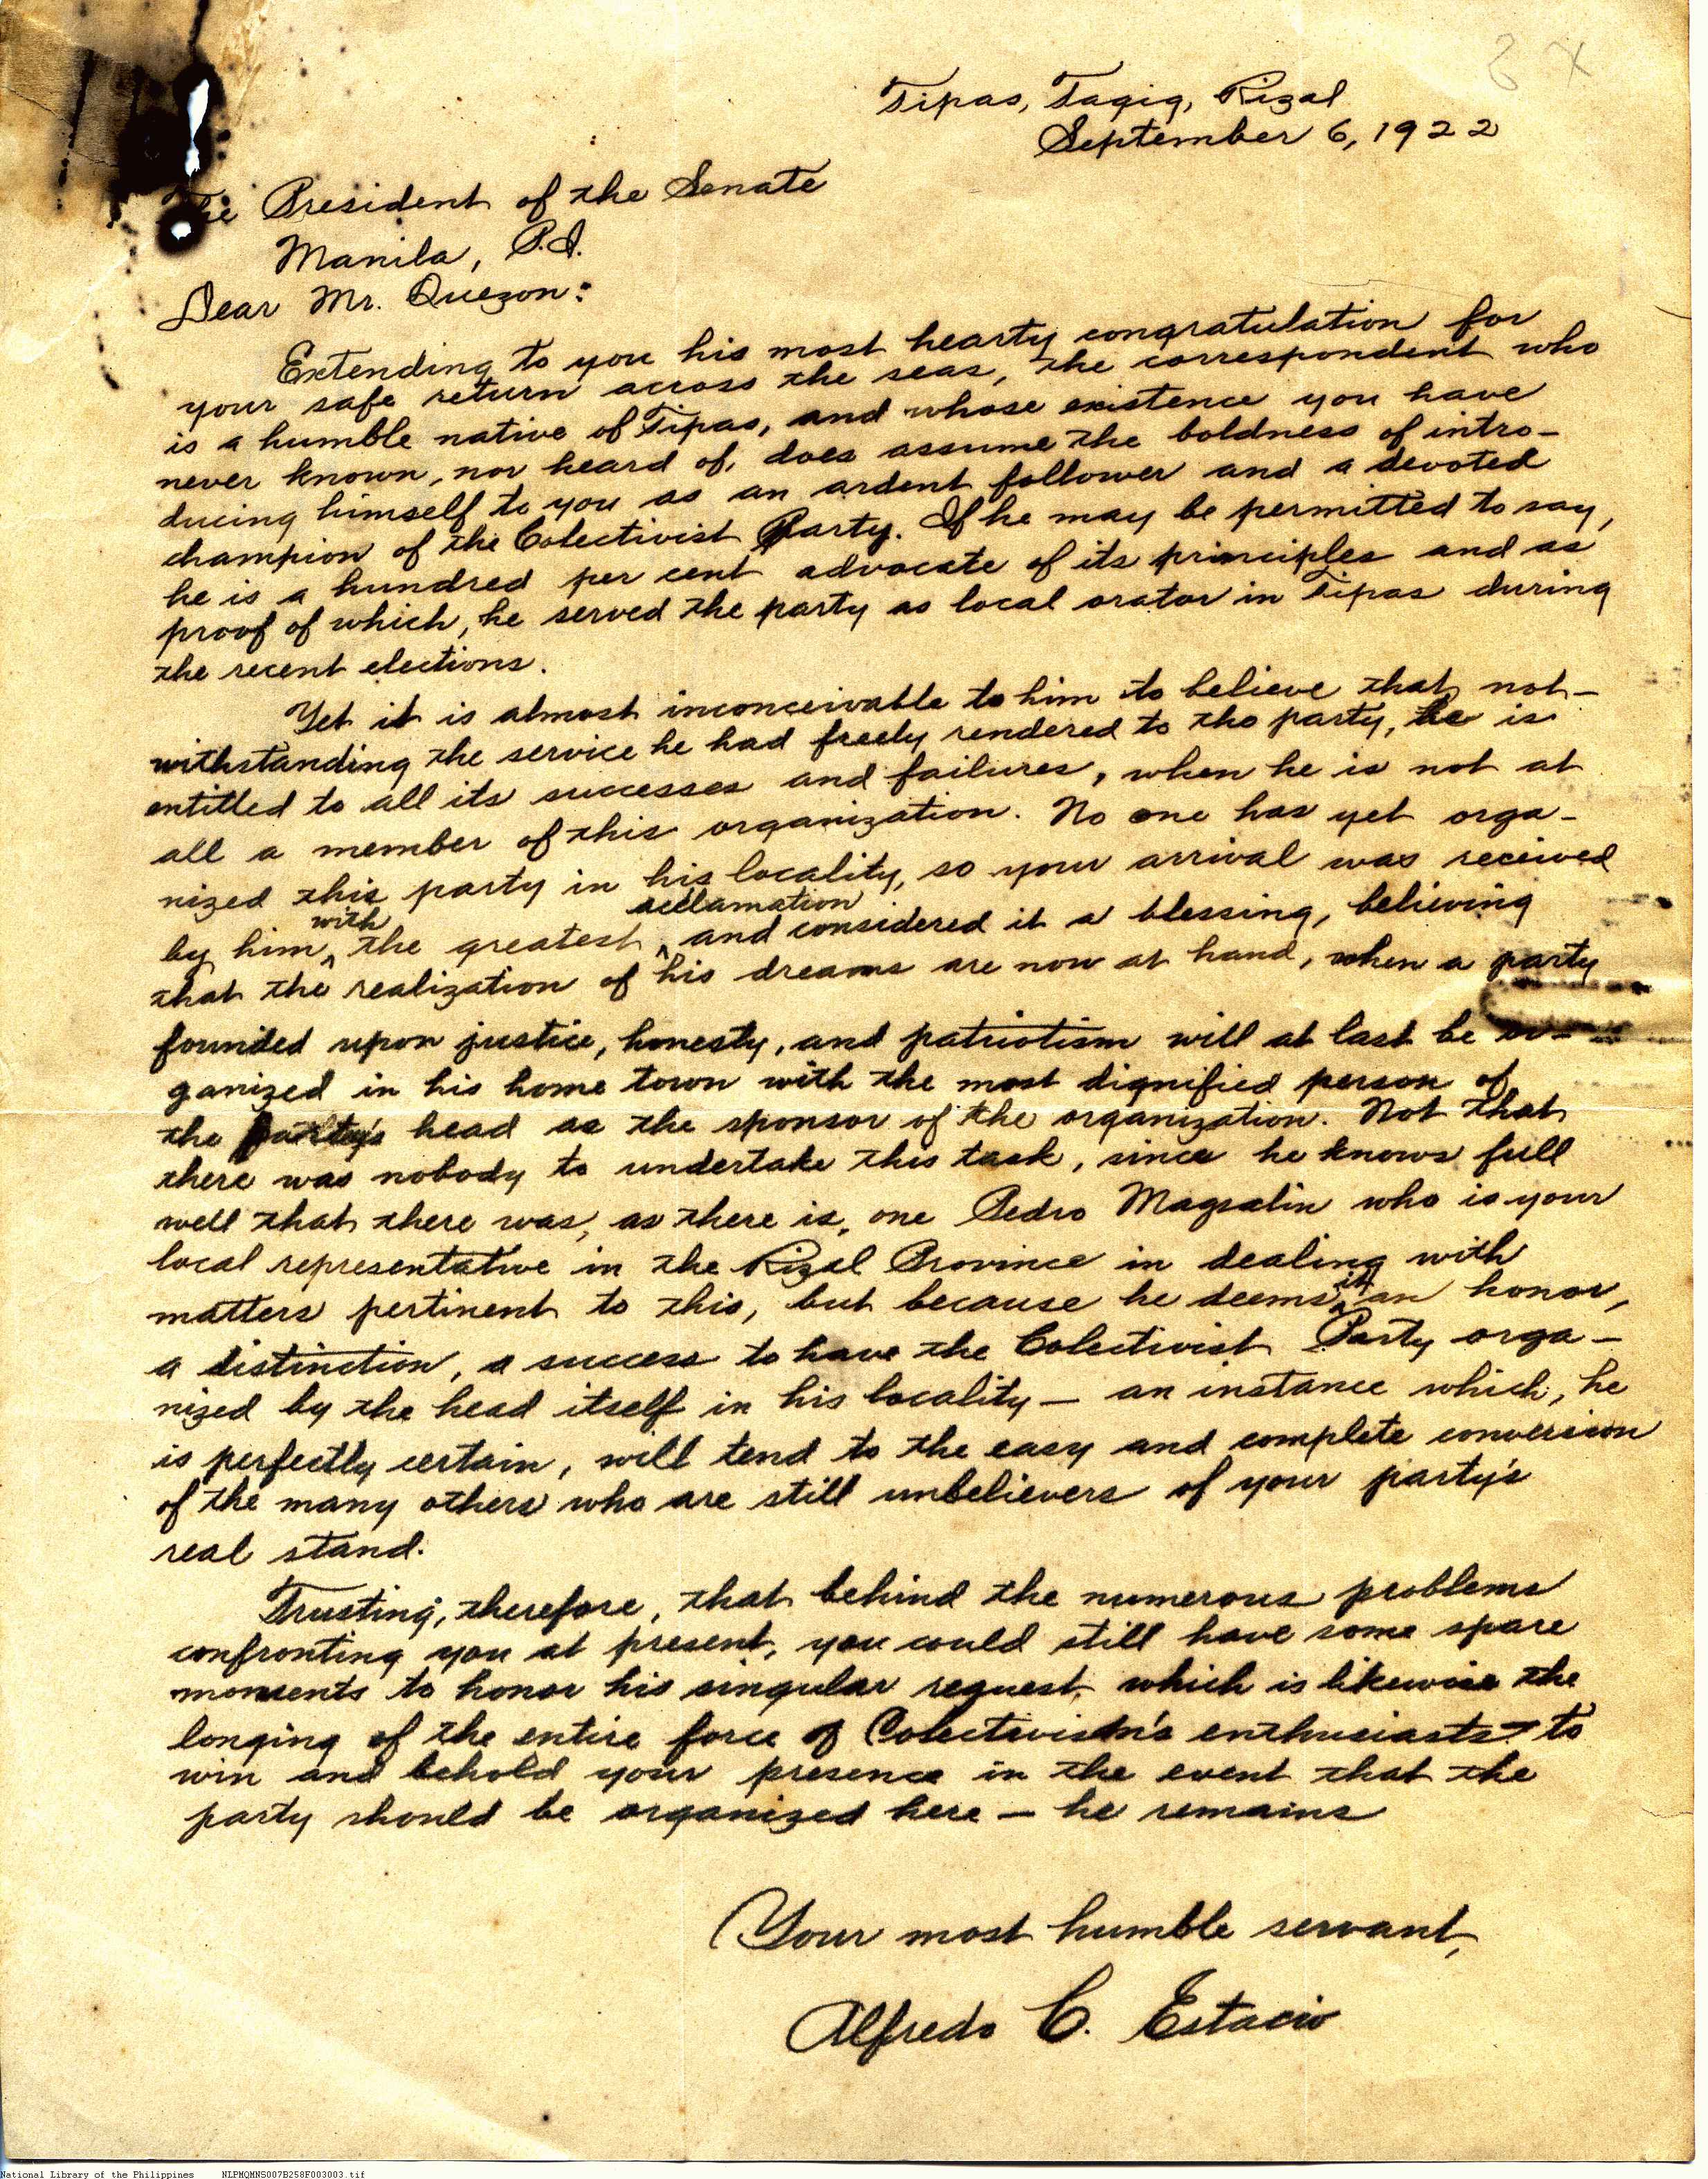 Tipas, Tagig, Rizal
September 6, 1922
The President of the Senate
Manila, P.I.
Dear Mr. Quezon:
Extending to you his most hearty congratulation for
your safe return across the seas, the correspondent who
is a humble native of Tipas, and whose existence you have
never known, nor heard of, does assume the boldness of intro-
ducing himself to you as an ardent follower and a devoted
champion of the Colectivist Party. If he may be permitted to say,
he is a hundred per cent advocate of its principles and as
proof of which, he served the party as local orator in Tipas during
the recent elections.
Yet it is almost inconceivable to him to believe that not-
withstanding the service he had freely rendered to the party, he is
entitled to all its successes and failures, when he is not at
all a member of this organization. No one has yet orga-
nized this party in his locality, so your arrival was received
by him with the greatest acclamation and considered it a blessing, believing
that the realization of his dreams are now at hand, when a party
founded upon justice, honesty, and patriotism will at last be or-
ganized in his home town with the most dignified person of
the party's head as the sponsor of the organization. Not that
there was nobody to undertake this task, since he knows full
well that there was, as there is, one Pedro Magsalin who is your
local representative in the Rizal Province in dealing with
matters pertinent to this, but because he deems it an honor,
a distinction, a success to have the Colectivist Party orga-
nized by the head itself in his locality — an instance which, he
is perfectly certain, will tend to the easy and complete conversion
of the many others who are still unbelievers of your party's
real stand.
Trusting, therefore, that behind the numerous problems
confronting you at present, you could still have some spare
moments to honor his singular request, which is likewise the
longing of the entire force of Colectivism's enthusiasts - to
win and behold your presence in the event that the
party should be organized here — he remains
Your most humble servant,
Alfredo C. Estacio
National Library of the Philippines NLPMQMNS007B258F003003.tif